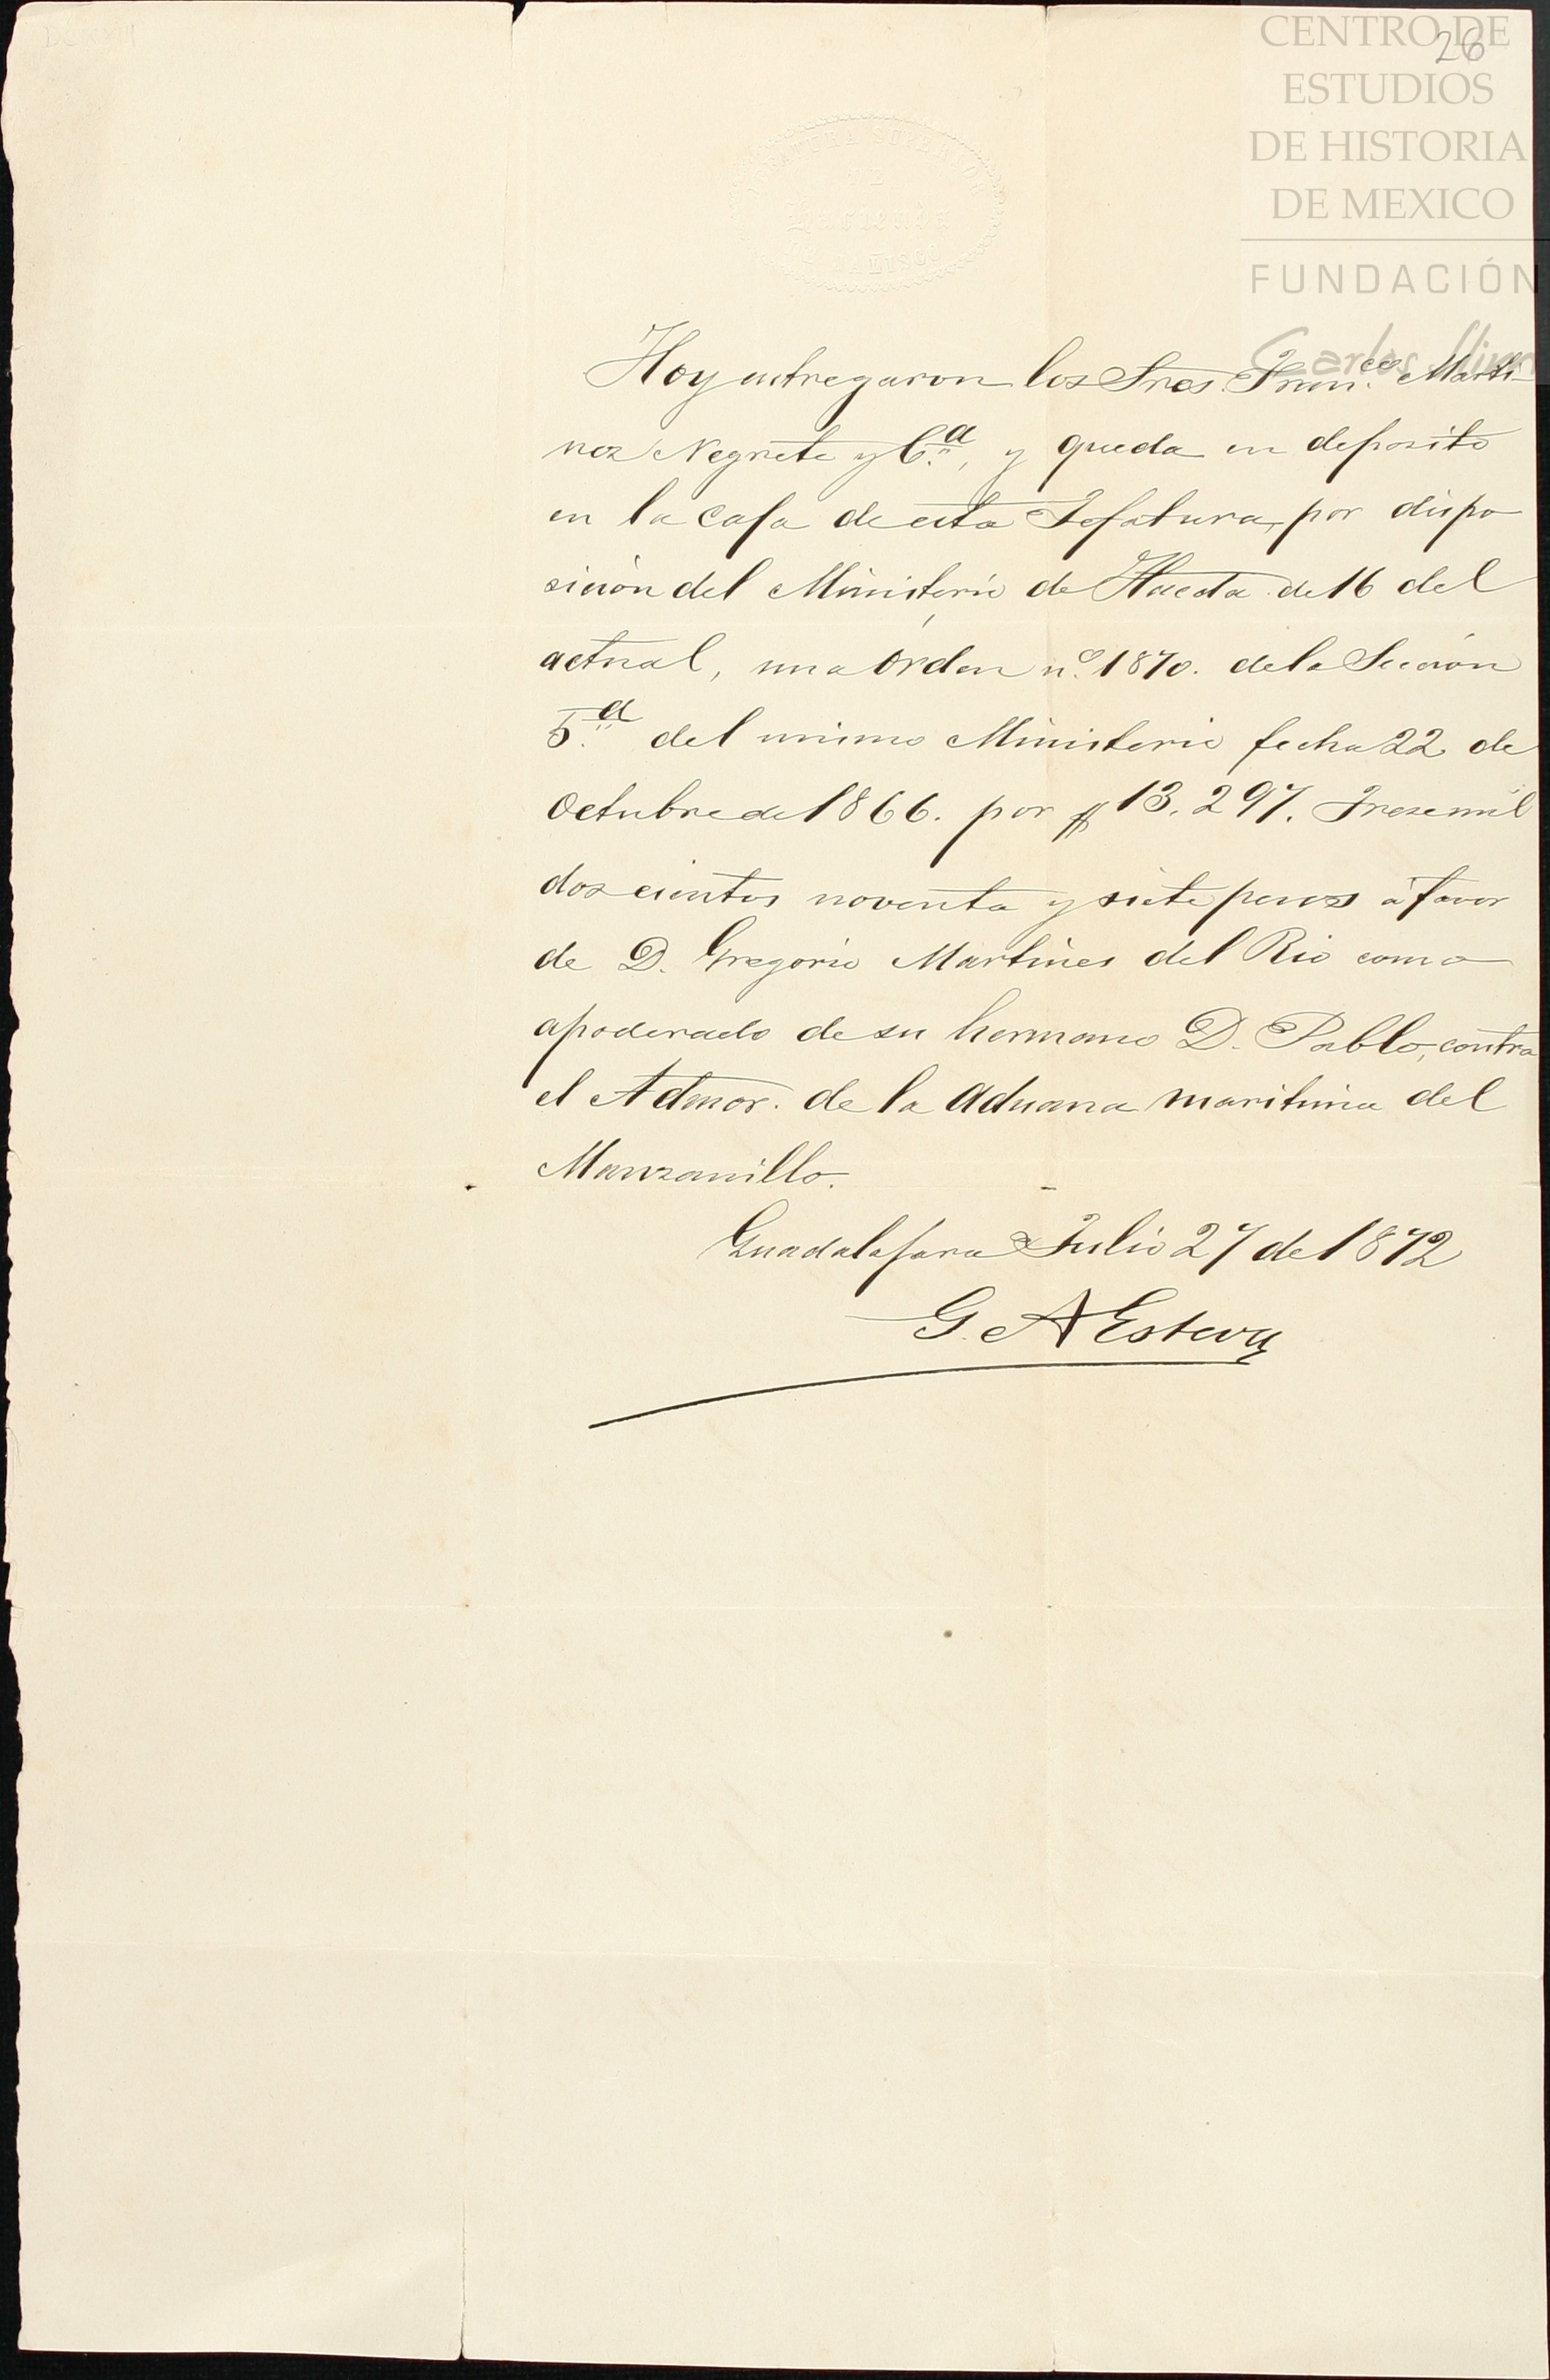 CENTRO DE
26
ESTUDIOS
DE HISTORIA
DE MEXICO
FUNDACIÓN
Carlos Slim
JEFATURA SUPERIOR
DE
Hacienda
JALISCO
Hoy entregaron los Sres. Fran.co Marti-
nez Negrete y C.a, y queda en deposito
en la casa de esta Jefatura, por dispo
sición del Ministerio de Hacda. de 16 del
actual, una órden n.o 1870. de la Sección
5.a del mismo Ministerio fecha 22 de
Octubre de 1866. por $ 13.297. Trese mil
dos cientos noventa y siete pesos á favor
de D. Gregorio Martines del Rio como
apoderado de su hermano D. Pablo, contra
el Admor. de la Aduana maritima del
Manzanillo.
Guadalajara Julio 27 de 1872
G. A Esteva